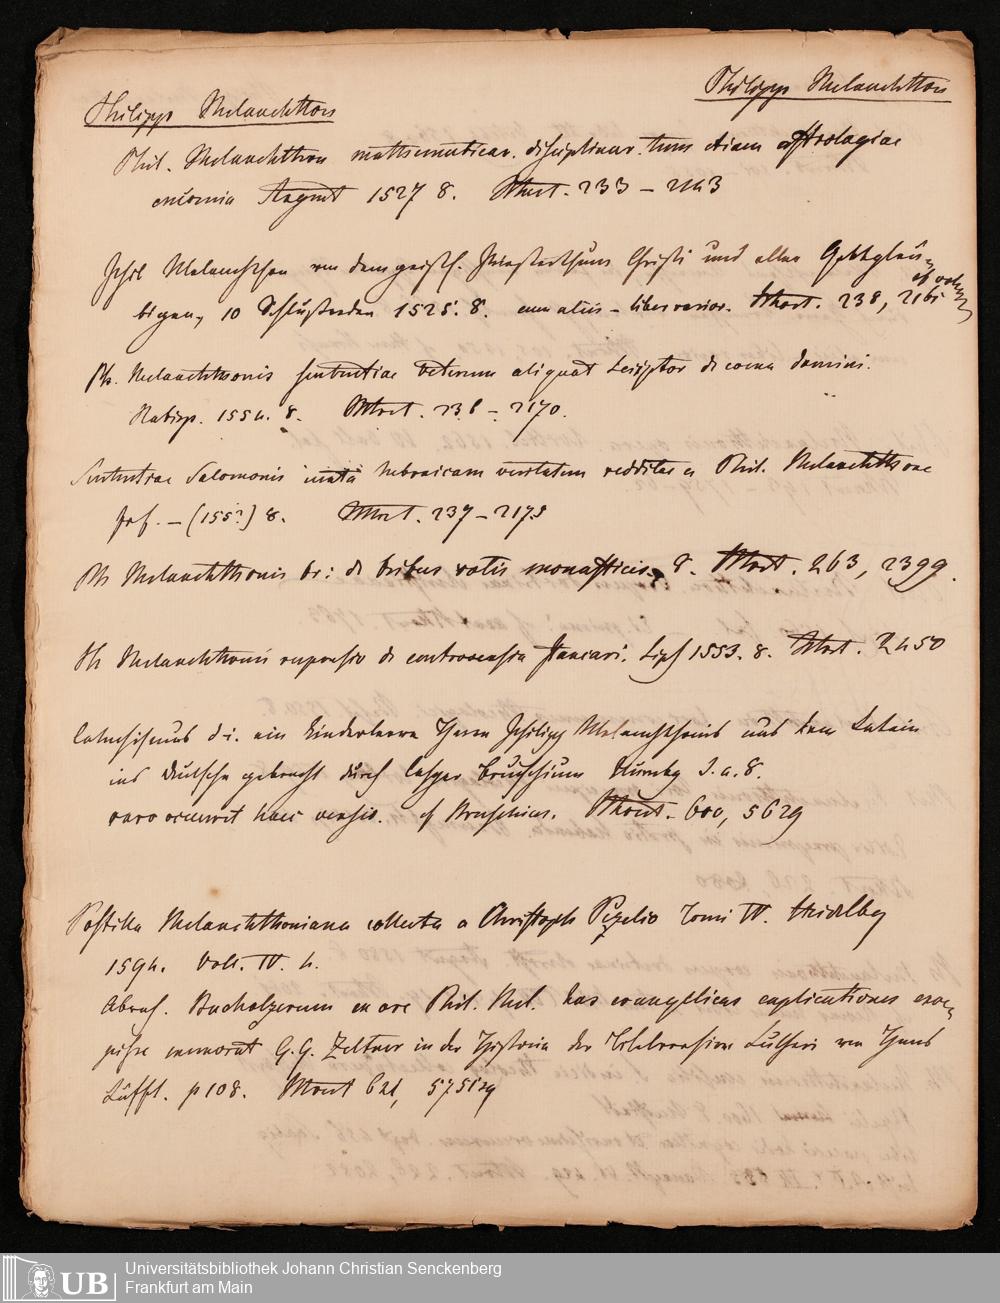 Philipp Melanchthon
Philipp Melanchthon
Phil. Melanchthon mathematicar. disciplinar. tum etiam astrologiae
encomia August 1527 8. 233 - 2143
Phil Melanchthon von dem geistl. Christi und aller Gottgläu-
bigen, 10 Schlußreden 1528. 8. cum aliis - liber rarior. 238, 2161
Ph. Melanchthonis sententiae veterum aliquot Scriptor de coena domini.
1554. 8. 236 - 2170.
Sententiae Salomonis iuxta hebraicam veritatem redditae a Phil. Melanchthone
- (155?) 8. 237 - 2175
Ph Melanchthonis de tribus votis monasticis. 8. 263, 2399.
Ph Melanchthonis responsio de controversia Stancari. Lips 1553. 8. 2450
Catechismus d. i. ein Kinderlehre Herrn Philipp Melanchthonis aus dem Latein
ins deutsche gebracht durch Caspar Bruschium Nürnbg S. a. 8.
raro occurrit haec versio. cf Bruschius. 600, 5629
Postilla Melanchthoniana collecta a Christoph Pezelio Tomi IV. Heidelbg
1594. Voll. IV. 4.
Abrah. Bucholzerum ex ore Phil. Mel. has evangelicas explicationes exce-
pisse G. G. Zeltner in der Historia der Bibelversion Lutheri von Hans
Lufft. p 108. 621, 5751
Universitätsbibliothek Johann Christian Senckenberg
Frankfurt am Main
UB